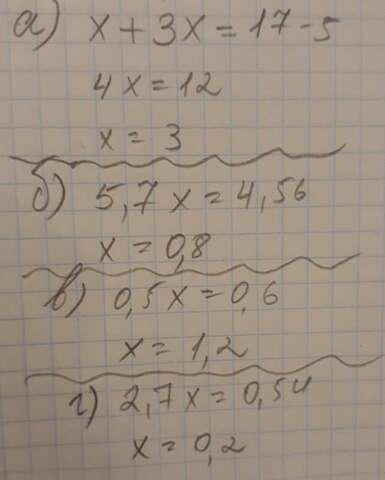 а) x + 3x = 17 - 5
4x = 12
x = 3
б) 5,7x = 4,56
x = 0,8
в) 0,5x = 0,6
x = 1,2
г) 2,7x = 0,54
x = 0,2